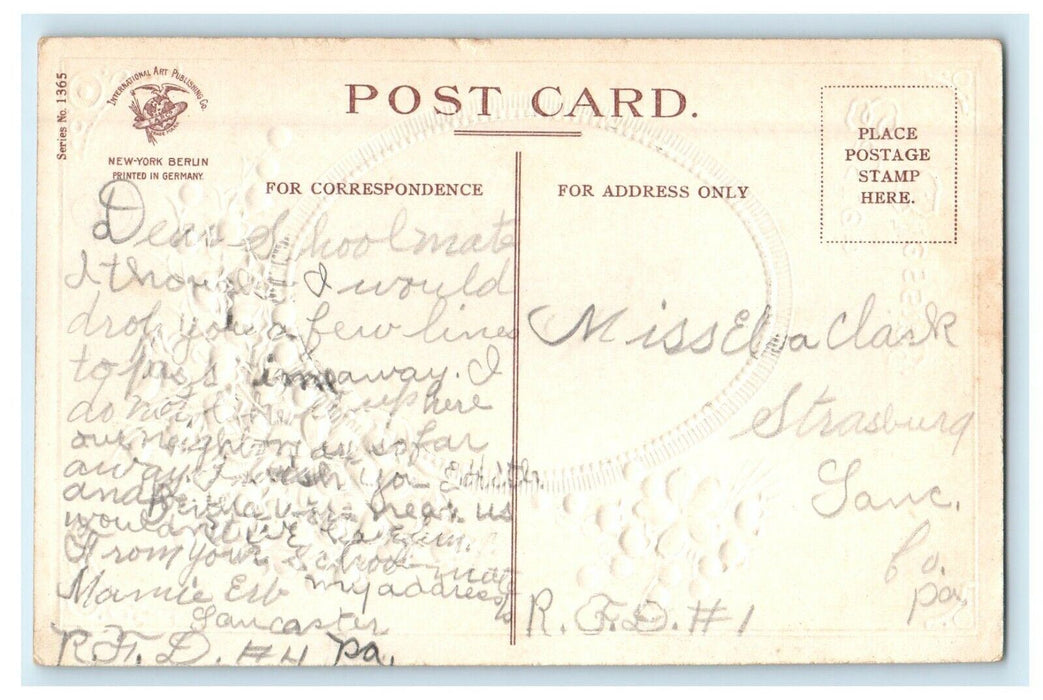 Series No. 1365
INTERNATIONAL ART PUBLISHING Co.
NEW-YORK BERLIN
PRINTED IN GERMANY.
POST CARD.
PLACE
POSTAGE
STAMP
HERE.
FOR CORRESPONDENCE
FOR ADDRESS ONLY
Dear Schoolmate
I thought I would
drop you a few lines
to pass time away. I
do not like it up here
our neighbors are so far
away. I wish you Edith
and Bertha were near us
wouldn't we have fun.
From your schoolmate
Mamie Erb my address is
Lancaster
R.F.D. #4 Pa.
Miss Elva Clark
Strasburg
Lanc.
Co.
Pa.
R.F.D. #1